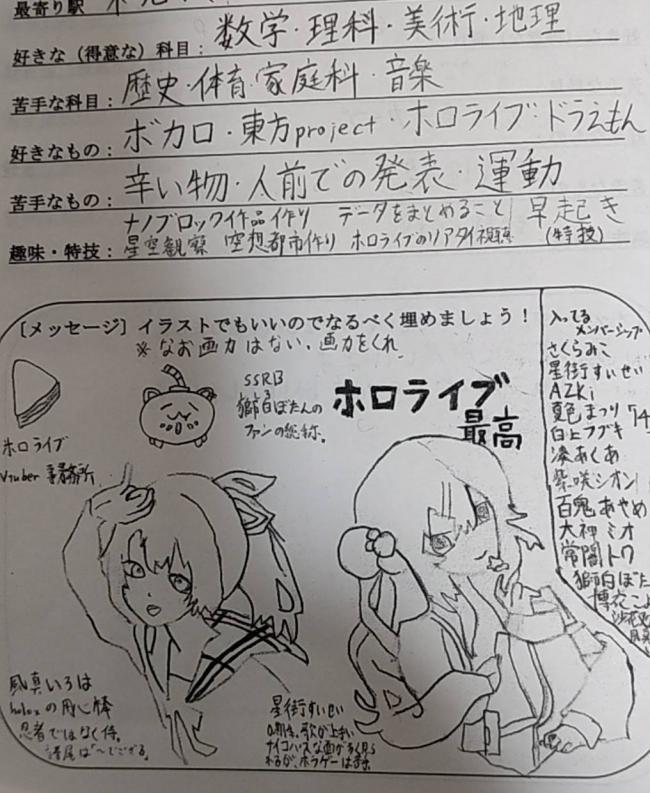 最寄り駅
好きな（得意な）科目：数学・理科・美術・地理
苦手な科目：歴史・体育・家庭科・音楽
好きなもの：ボカロ・東方project・ホロライブ・ドラえもん
苦手なもの：辛い物・人前での発表・運動
ナノブロック作品作り データをまとめること 早起き
趣味・特技：星空観察 空想都市作り ホロライブのリアタイ視聴 (特技)
［メッセージ］イラストでもいいのでなるべく埋めましょう！
※なお画力はない、画力をくれ
ホロライブ
Vtuber 事務所
SSRB
獅白ぼたんの
ファンの総称。
ホロライブ
最高
入ってる
メンバーシップ
さくらみこ
星街すいせい
AZKi
夏色まつり
白上フブキ
湊あくあ
紫咲シオン
百鬼あやめ
大神ミオ
常闇トワ
獅白ぼた
博衣こよ
風真いろは
holoxの用心棒
忍者ではなく侍。
語尾は「〜でござる。
星街すいせい
歌が上手い